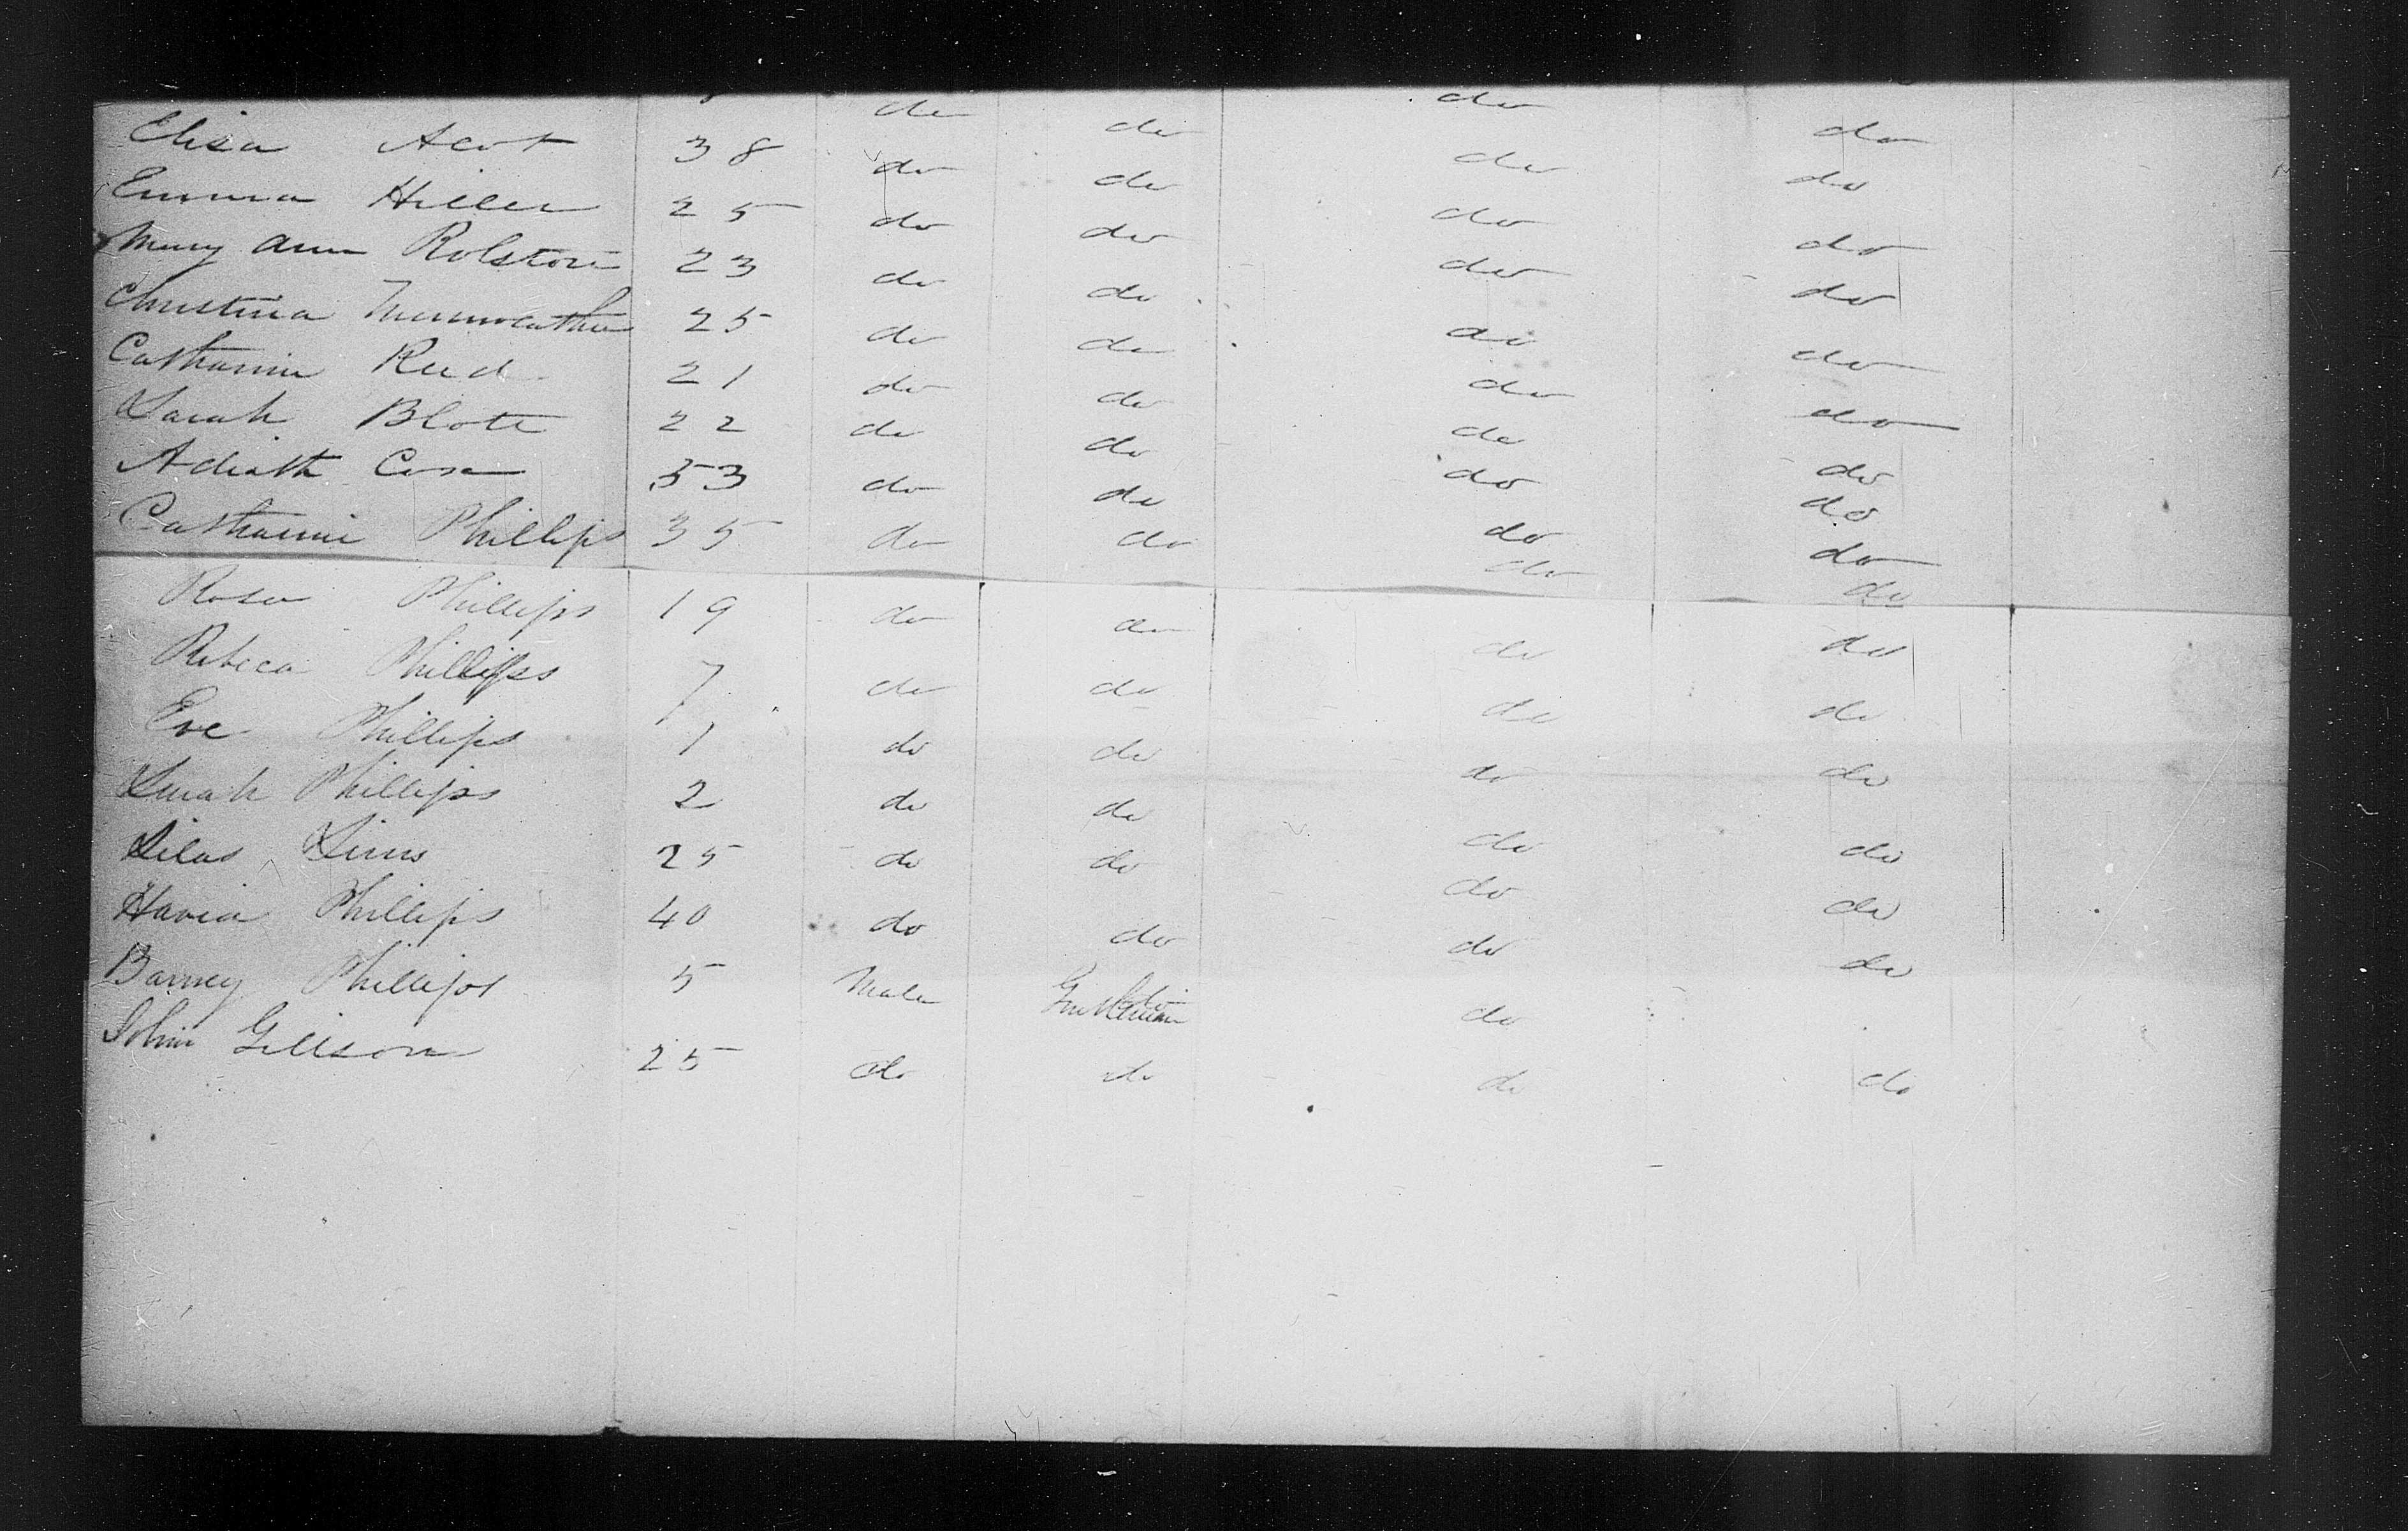 do do do do
Elisa Acot 38 do do do do
Emma Hiller 25 do do do do
Mary Ann Rolston 23 do do do do
Christina 25 do do do do
Catharine Reed 21 do do do do
Sarah Blote 22 do do do do
Adiath Cose 53 do do do do
Catharine Phillips 35 do do do do
Rosa Phillips 19 do do do do
Rebeca Phillips 7 do do do do
Eve Phillips 1 do do do do
Sarah Phillips 2 do do do do
Silas Sims 25 do do do do
Phillips 40 do do do do
Barney Phillips 5 Male do
John Gillson 25 do do do do